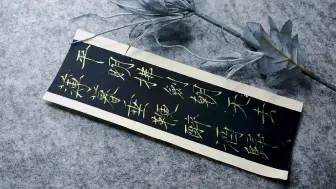 平明拂劍朝天去
薄暮垂鞭醉酒歸